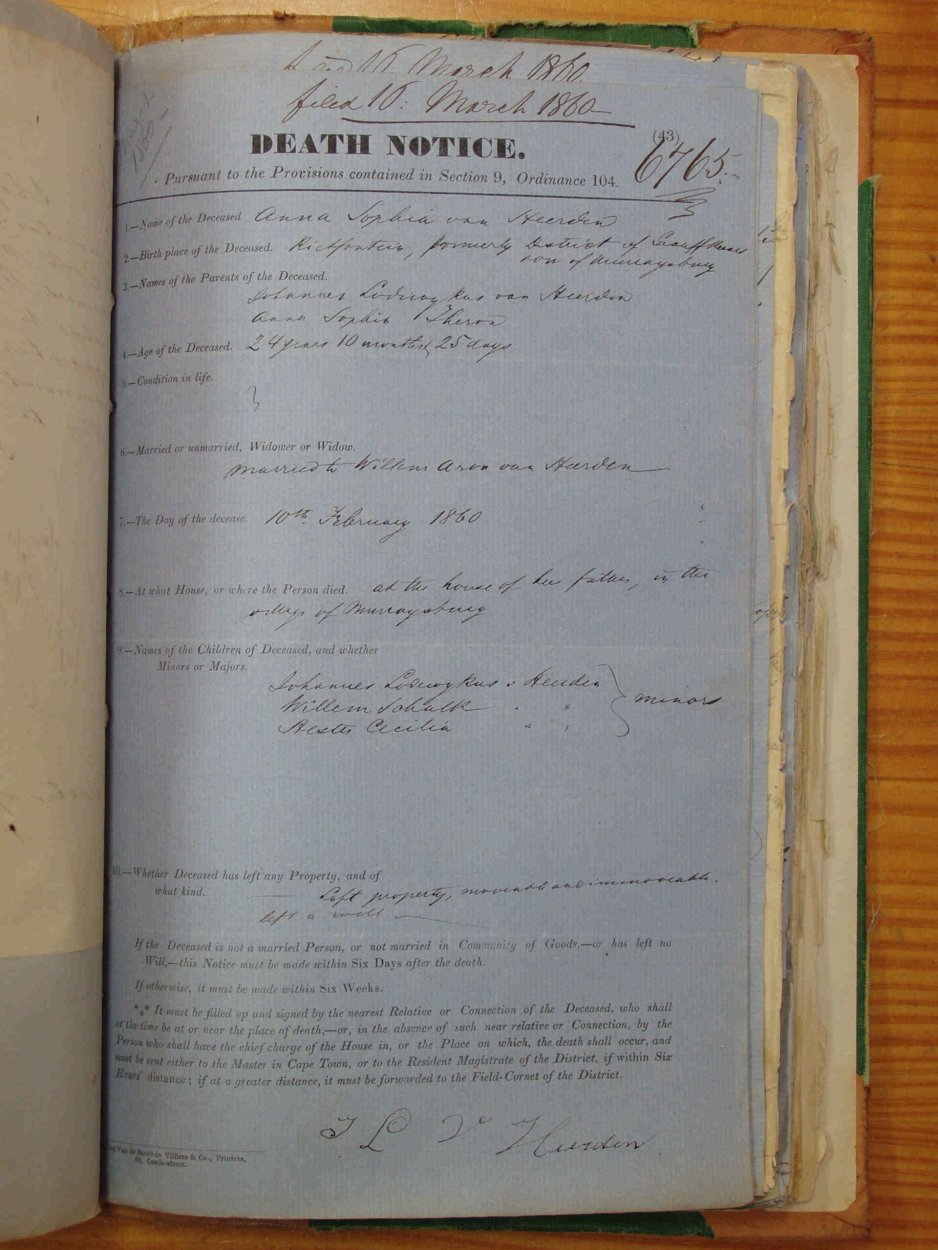 16 March 1860
filed 16: March 1860
DEATH NOTICE.
(43)
6765
Pursuant to the Provisions contained in Section 9, Ordinance 104.
1.—Name of the Deceased Anna Sophia van Heerden
2.—Birth-place of the Deceased. Rietfontein, formerly District of Graaff Reinet
now of Murraysburg
3.—Names of the Parents of the Deceased.
Johannes Lodewykus van Heerden
Anna Sophia Theron
4.—Age of the Deceased. 24 years 10 months 25 days
5.—Condition in life.
6.—Married or unmarried, Widower or Widow.
married to Willem Aron van Heerden
7.—The Day of the decease. 10th. February 1860
8.—At what House, or where the Person died. at the house of her father, in the
village of Murraysburg
9.—Names of the Children of Deceased, and whether
Minors or Majors.
Johannes Lodewykus v Heerden
Willem Schalk " "
Hester Cecilia " "
minors
10.—Whether Deceased has left any Property, and of
what kind. Left property, moveable and immoveable.
left a will
If the Deceased is not a married Person, or not married in Community of Goods,—or has left no
Will,—this Notice must be made within Six Days after the death.
If otherwise, it must be made within Six Weeks.
*** It must be filled up and signed by the nearest Relative or Connection of the Deceased, who shall
at the time be at or near the place of death,—or, in the absence of such near relative or Connection, by the
Person who shall have the chief charge of the House in, or the Place on which, the death shall occur, and
must be sent either to the Master in Cape Town, or to the Resident Magistrate of the District, if within Six
Hours' distance; if at a greater distance, it must be forwarded to the Field-Cornet of the District.
J L V Heerden
by Van de Sandt de Villiers & Co., Printers,
Castle-street.